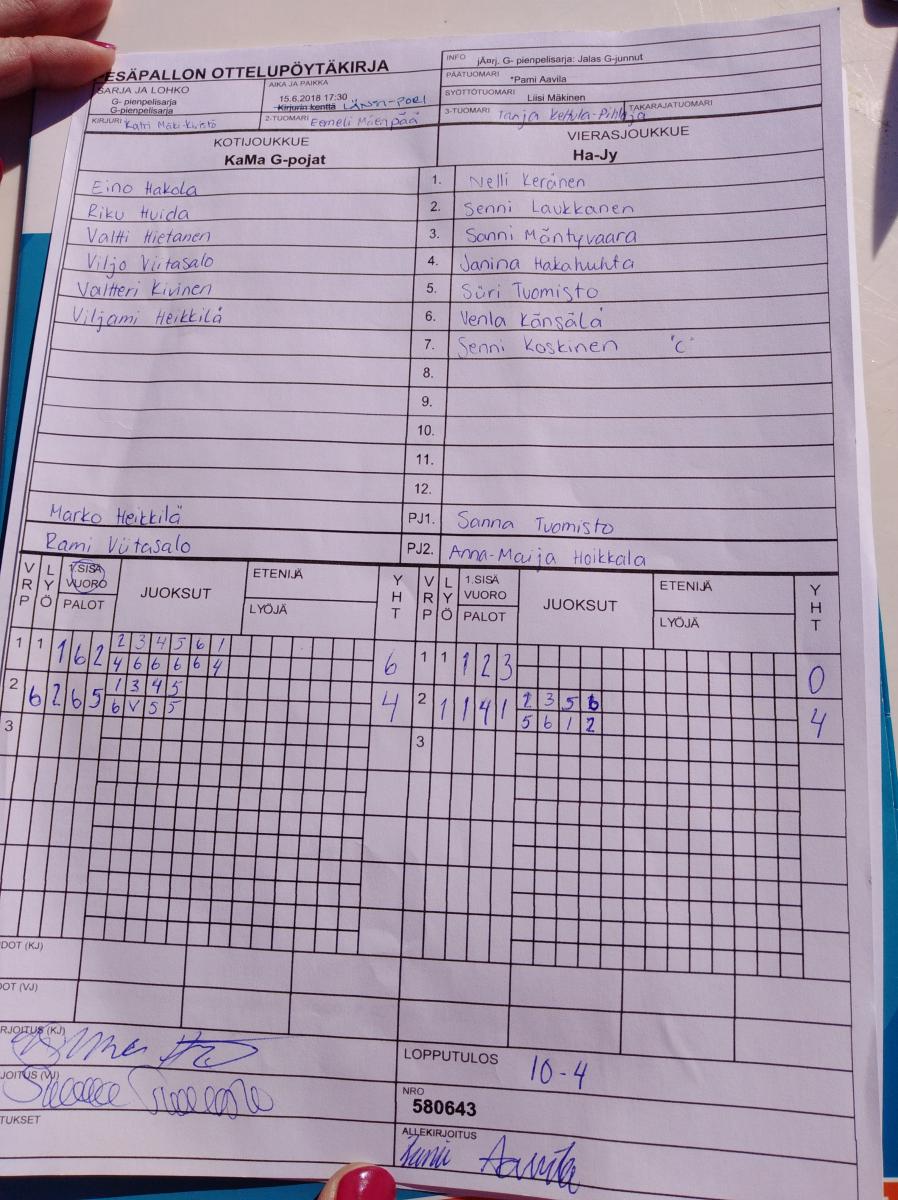 ESÄPALLON OTTELUPÖYTÄKIRJA
SARJA JA LOHKO
G- pienpelisarja
G-pienpelisarja
AIKA JA PAIKKA
15.6.2018 17:30
Kirjurin kenttä LÄNSI-PORI
KIRJURI Katri Mäki-Kivistö
2-TUOMARI Eemeli Mäenpää
INFO jÄørj. G- pienpelisarja: Jalas G-junnut
PÄÄTUOMARI *Pami Aavila
SYÖTTÖTUOMARI Liisi Mäkinen
3-TUOMARI Tanja Kettula-Pihlaja TAKARAJATUOMARI
KOTIJOUKKUE
KaMa G-pojat
VIERASJOUKKUE
Ha-Jy
Eino Hakola 1. Nelli Keränen
Riku Huida 2. Senni Laukkanen
Valtti Hietanen 3. Sanni Mäntyvaara
Viljo Viitasalo 4. Janina Hakahuhta
Valtteri Kivinen 5. Siiri Tuomisto
Viljami Heikkilä 6. Venla Känsälä
7. Senni Koskinen "C"
8.
9.
10.
11.
12.
Marko Heikkilä PJ1. Sanna Tuomisto
Rami Viitasalo PJ2. Anna-Maija Hoikkala
VRP LYÖ 1.SISÄ VUORO PALOT JUOKSUT ETENIJÄ LYÖJÄ YHT VRP LYÖ 1.SISÄ VUORO PALOT JUOKSUT ETENIJÄ LYÖJÄ YHT
1 1 1 6 2 2 3 4 5 6 1 6 1 1 1 2 3 0
4 6 6 6 6 4
2 6 2 6 5 1 3 4 5 4 2 1 1 4 1 2 3 5 6 4
6 V 5 5 5 6 1 2
3 3
DOT (KJ)
DOT (VJ)
RJOITUS (KJ)
JOITUS (VJ)
TUKSET
LOPPUTULOS 10-4
NRO
580643
ALLEKIRJOITUS
Aavila